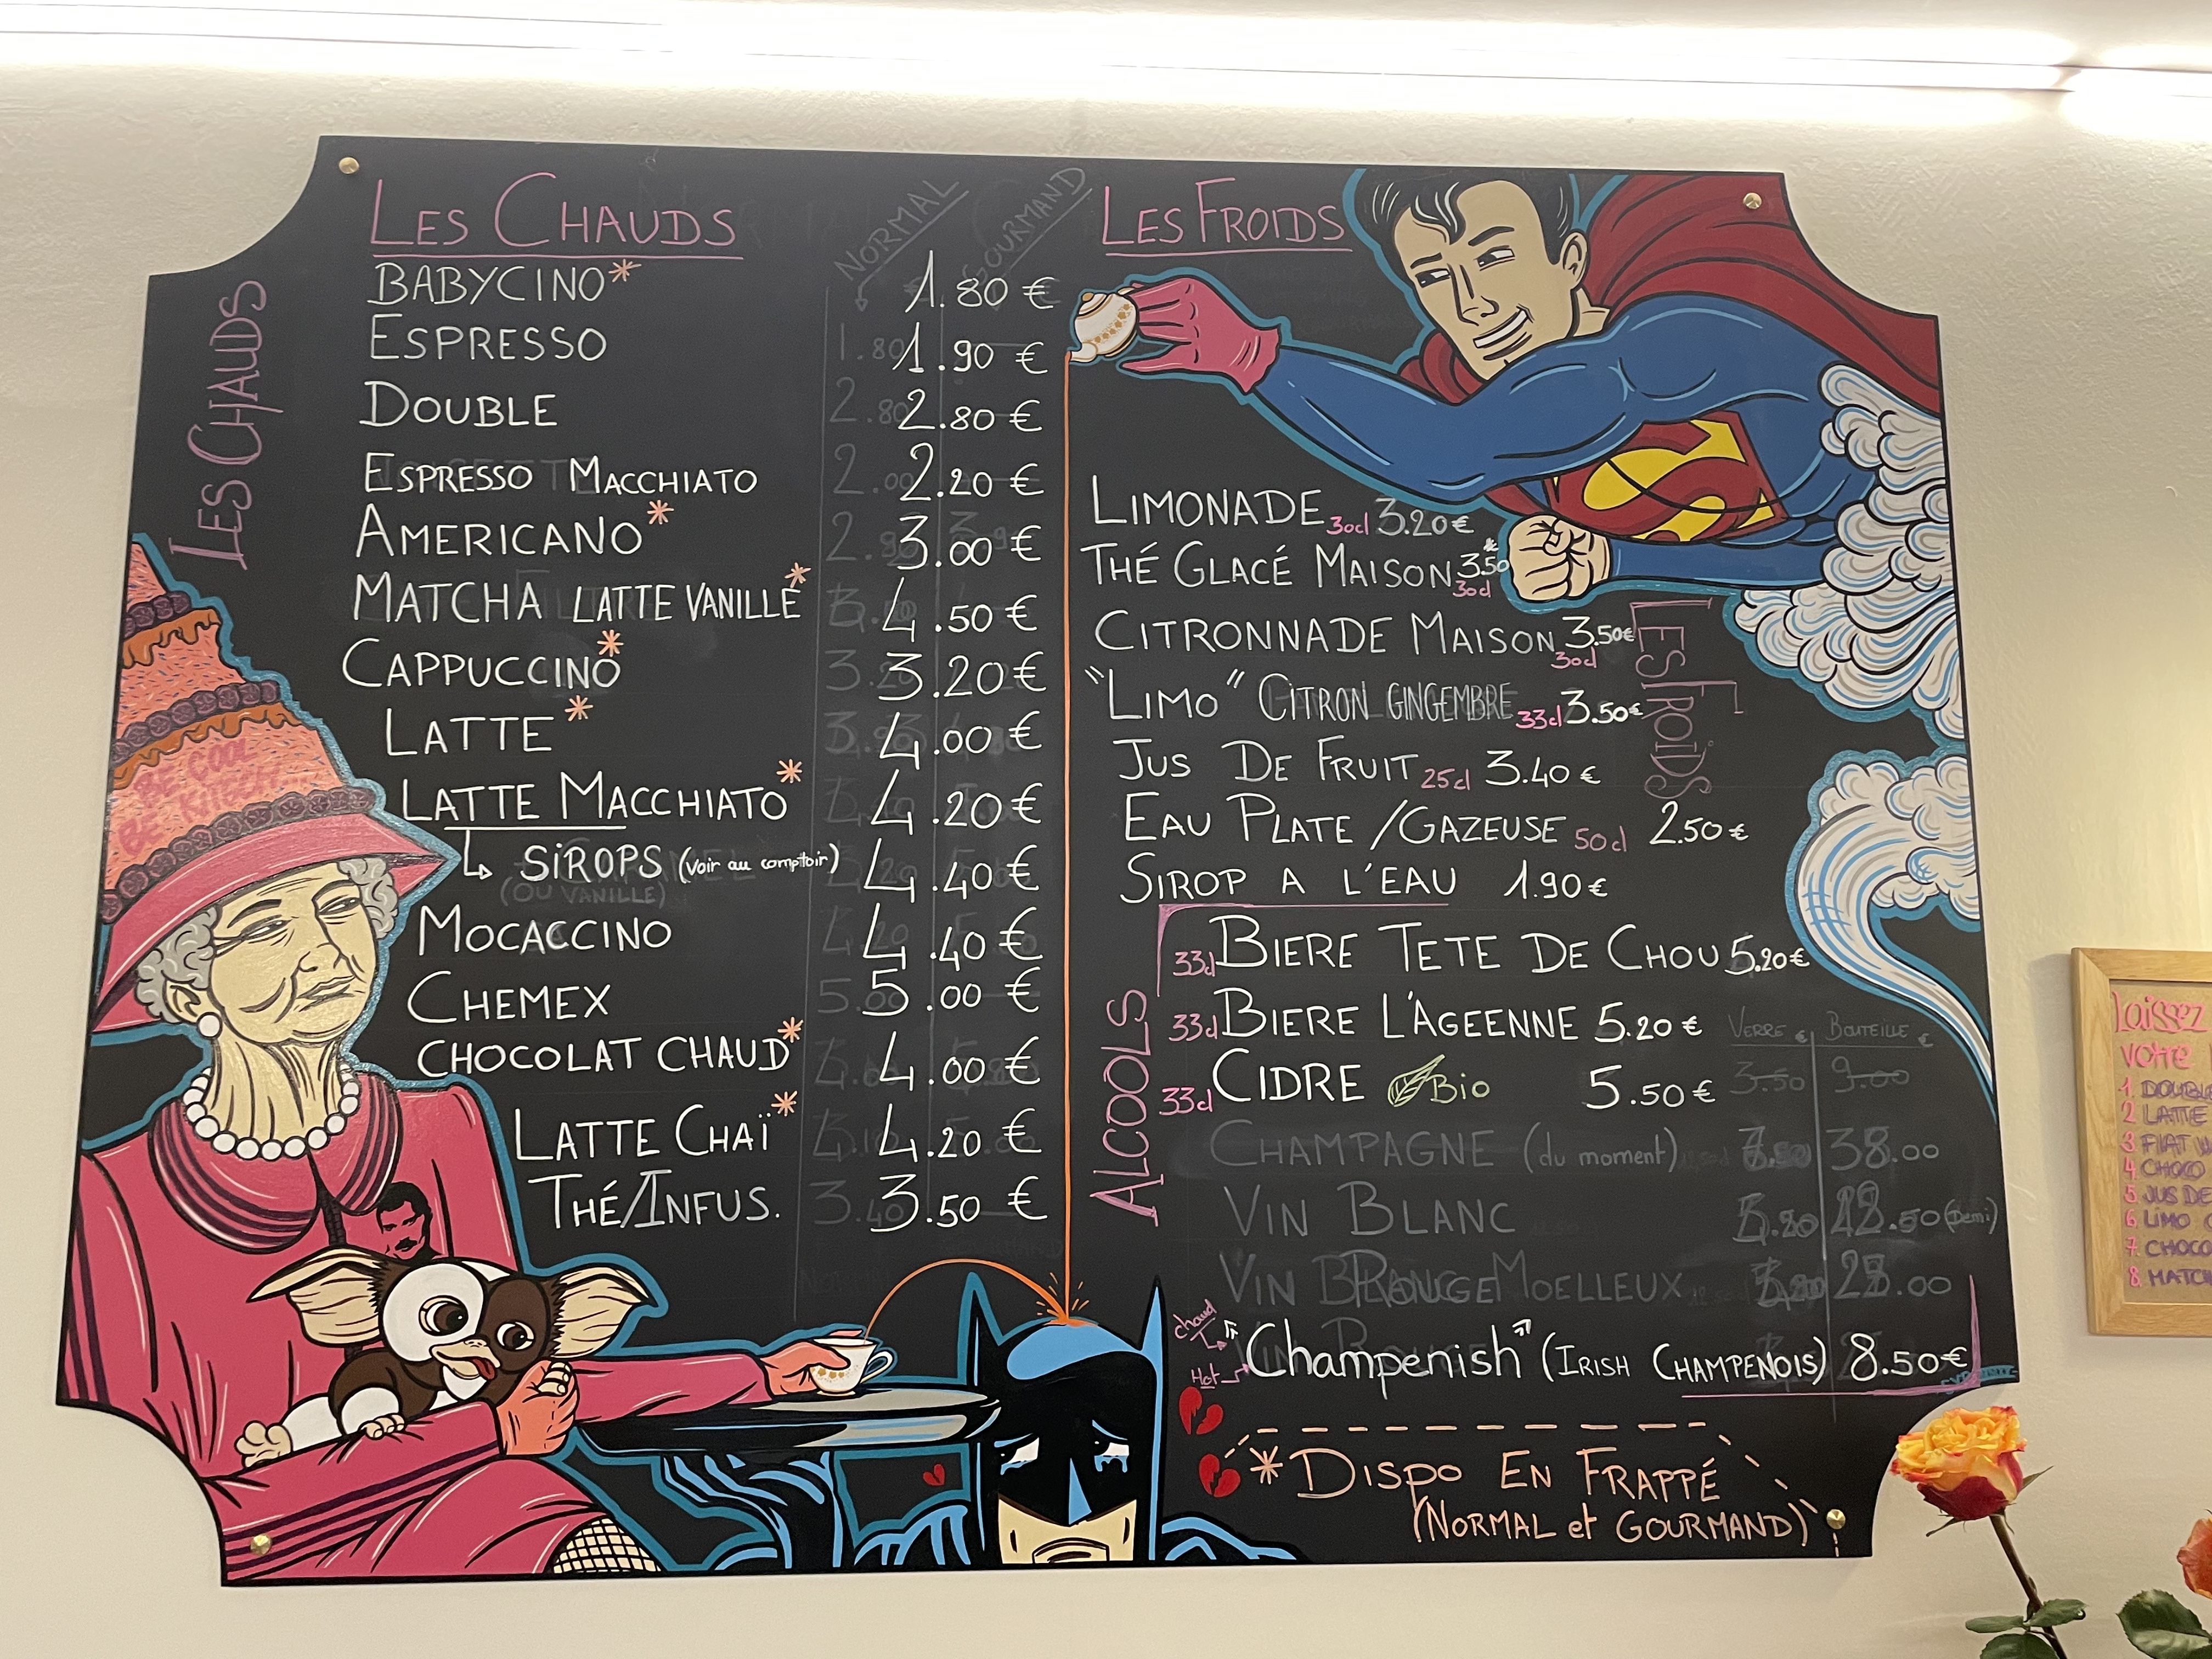 LES CHAUDS
NORMAL
GOURMAND
LES CHAUDS
BABYCINO* 1.80 €
ESPRESSO 1.90 €
DOUBLE 2.80 €
ESPRESSO MACCHIATO 2.20 €
AMERICANO* 3.00 €
MATCHA LATTE VANILLE* 4.50 €
CAPPUCCINO* 3.20 €
LATTE* 4.00 €
LATTE MACCHIATO* 4.20 €
↳ SIROPS (voir au comptoir) 4.40 €
(OU VANILLE)
MOCACCINO 4.40 €
CHEMEX 5.00 €
CHOCOLAT CHAUD* 4.00 €
LATTE CHAÏ* 4.20 €
THÉ/INFUS. 3.50 €
BE COOL
LES FROIDS
LES FROÏDS
LIMONADE 30cl 3.20€
THÉ GLACÉ MAISON* 3.50 30cl
CITRONNADE MAISON 3.50€ 30cl
"LIMO" CITRON GINGEMBRE 33cl 3.50€
JUS DE FRUIT 25cl 3.40 €
EAU PLATE /GAZEUSE 50cl 2.50 €
SIROP A L'EAU 1.90 €
ALCOOLS
33cl BIERE TETE DE CHOU 5.20€
33cl BIERE L'ÂGEENNE 5.20 €
VERRE € BOUTEILLE €
33cl CIDRE Bio 5.50 €
3.50 9.00
CHAMPAGNE (du moment) 38.00
VIN BLANC (Demi)
MOELLEUX
chaud
Hot
"Champenish" (IRISH CHAMPENOIS) 8.50€
*DISPO EN FRAPPÉ
(NORMAL et GOURMAND)
Laissez
votre
1. DOUBLE
2 LATTE
3
4 CHOCO
5 JUS DE
6 LIMO
7. CHOCO
8. MATCH